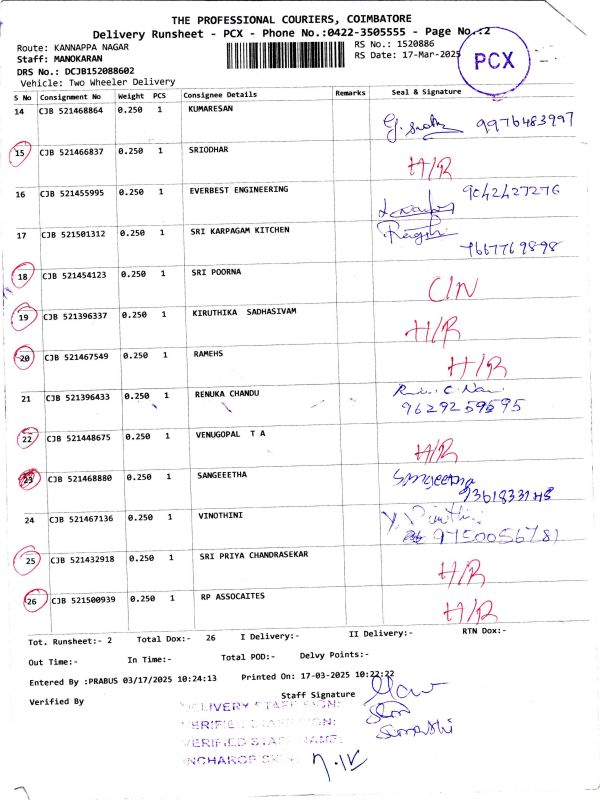 THE PROFESSIONAL COURIERS, COIMBATORE
Delivery Runsheet - PCX - Phone No.:0422-3505555 - Page No.:2
Route: KANNAPPA NAGAR RS No.: 1520886
Staff: MANOKARAN RS Date: 17-Mar-2025
PCX
DRS No.: DCJB152088602
Vehicle: Two Wheeler Delivery
S No Consignment No Weight PCS Consignee Details Remarks Seal & Signature
14 CJB 521468864 0.250 1 KUMARESAN 9976483997
15 CJB 521466837 0.250 1 SRIODHAR H/R
16 CJB 521455995 0.250 1 EVERBEST ENGINEERING 9042427276
17 CJB 521501312 0.250 1 SRI KARPAGAM KITCHEN 7667769898
18 CJB 521454123 0.250 1 SRI POORNA C/N
19 CJB 521396337 0.250 1 KIRUTHIKA SADHASIVAM H/R
20 CJB 521467549 0.250 1 RAMEHS H/R
21 CJB 521396433 0.250 1 RENUKA CHANDU 9629259595
22 CJB 521448675 0.250 1 VENUGOPAL T A H/R
23 CJB 521468880 0.250 1 SANGEEETHA Sangeetha
24 CJB 521467136 0.250 1 VINOTHINI 9750056781
25 CJB 521432918 0.250 1 SRI PRIYA CHANDRASEKAR H/R
26 CJB 521500939 0.250 1 RP ASSOCAITES H/R
Tot. Runsheet:- 2 Total Dox:- 26 I Delivery:- II Delivery:- RTN Dox:-
Out Time:- In Time:- Total POD:- Delvy Points:-
Entered By :PRABUS 03/17/2025 10:24:13 Printed On: 17-03-2025 10:22:22
Verified By Staff Signature
DELIVERY STAFF SIGN:
VERIFIED STAFF SIGN:
VERIFIED STAFF NAME: